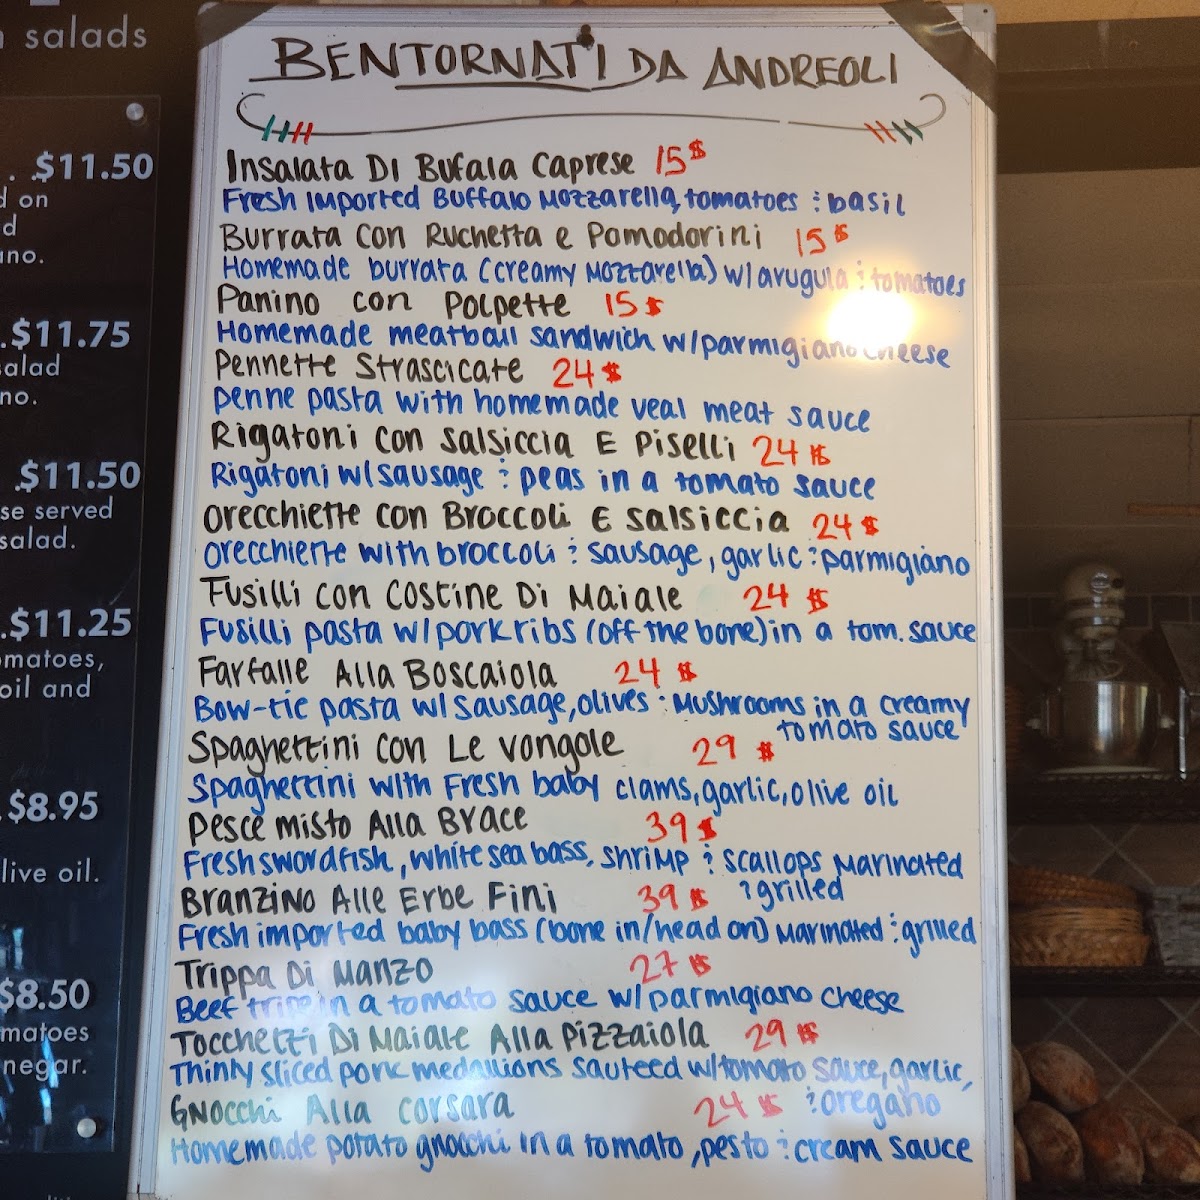 salads
. . .$11.50
d on
d
ano.
.$11.75
salad
no.
.$11.50
se served
salad.
.$11.25
omatoes,
oil and
.$8.95
live oil.
$8.50
matoes
negar.
BENTORNATI DA ANDREOLI
Insalata Di Bufala Caprese 15$
Fresh Imported Buffalo Mozzarella, tomatoes & basil
Burrata con Ruchetta e Pomodorini 15$
Homemade burrata (creamy Mozzarella) w/arugula & tomatoes
Panino con Polpette 15$
Homemade meatball sandwich w/parmigiano cheese
Pennette Strascicate 24$
penne pasta with homemade veal meat sauce
Rigatoni con Salsiccia E Piselli 24$
Rigatoni w/sausage & peas in a tomato sauce
Orecchiette con Broccoli E Salsiccia 24$
Orecchiette with broccoli & sausage, garlic & parmigiano
Fusilli con Costine Di Maiale 24$
Fusilli pasta w/pork ribs (off the bone) in a tom. sauce
Farfalle Alla Boscaiola 24$
Bow-tie pasta w/sausage, olives & Mushrooms in a creamy
tomato sauce
Spaghettini con Le Vongole 29$
Spaghettini with Fresh baby clams, garlic, olive oil
Pesce Misto Alla Brace 39$
Fresh swordfish, white sea bass, shrimp & scallops Marinated
& grilled
Branzino Alle Erbe Fini 39$
Fresh imported baby bass (bone in/head on) Marinated & grilled
Trippa Di Manzo 27$
Beef tripe in a tomato sauce w/parmigiano cheese
Tocchetti Di Maiale Alla Pizzaiola 29$
Thinly sliced pork medallions sauteed w/tomato sauce, garlic,
& oregano
Gnocchi Alla Corsara 24$
Homemade potato gnocchi in a tomato, pesto & cream sauce